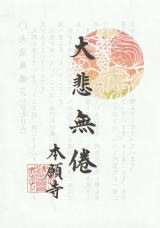 大悲無倦
本願寺